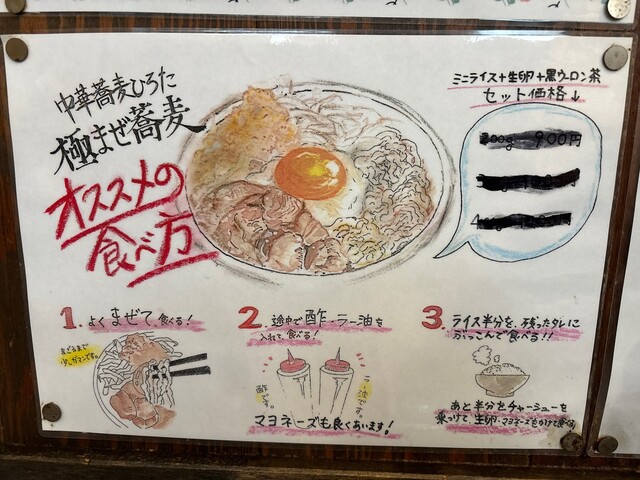 中華蕎麦ひろた
極まぜ蕎麦
オススメの
食べ方
ミニライス+生卵+黒ウーロン茶
セット価格↓
300g 900円
1. よくまぜて食べる!
まざるまで
少しガマンです。
2. 途中で酢・ラー油を
入れて食べる!
酢です。
ラー油です。
マヨネーズも良くあいます!
3. ライス半分を、残ったタレに
ぶっこんで食べる!!
あと半分をチャーシューを
乗っけて生卵・マヨネーズもかけて食べる